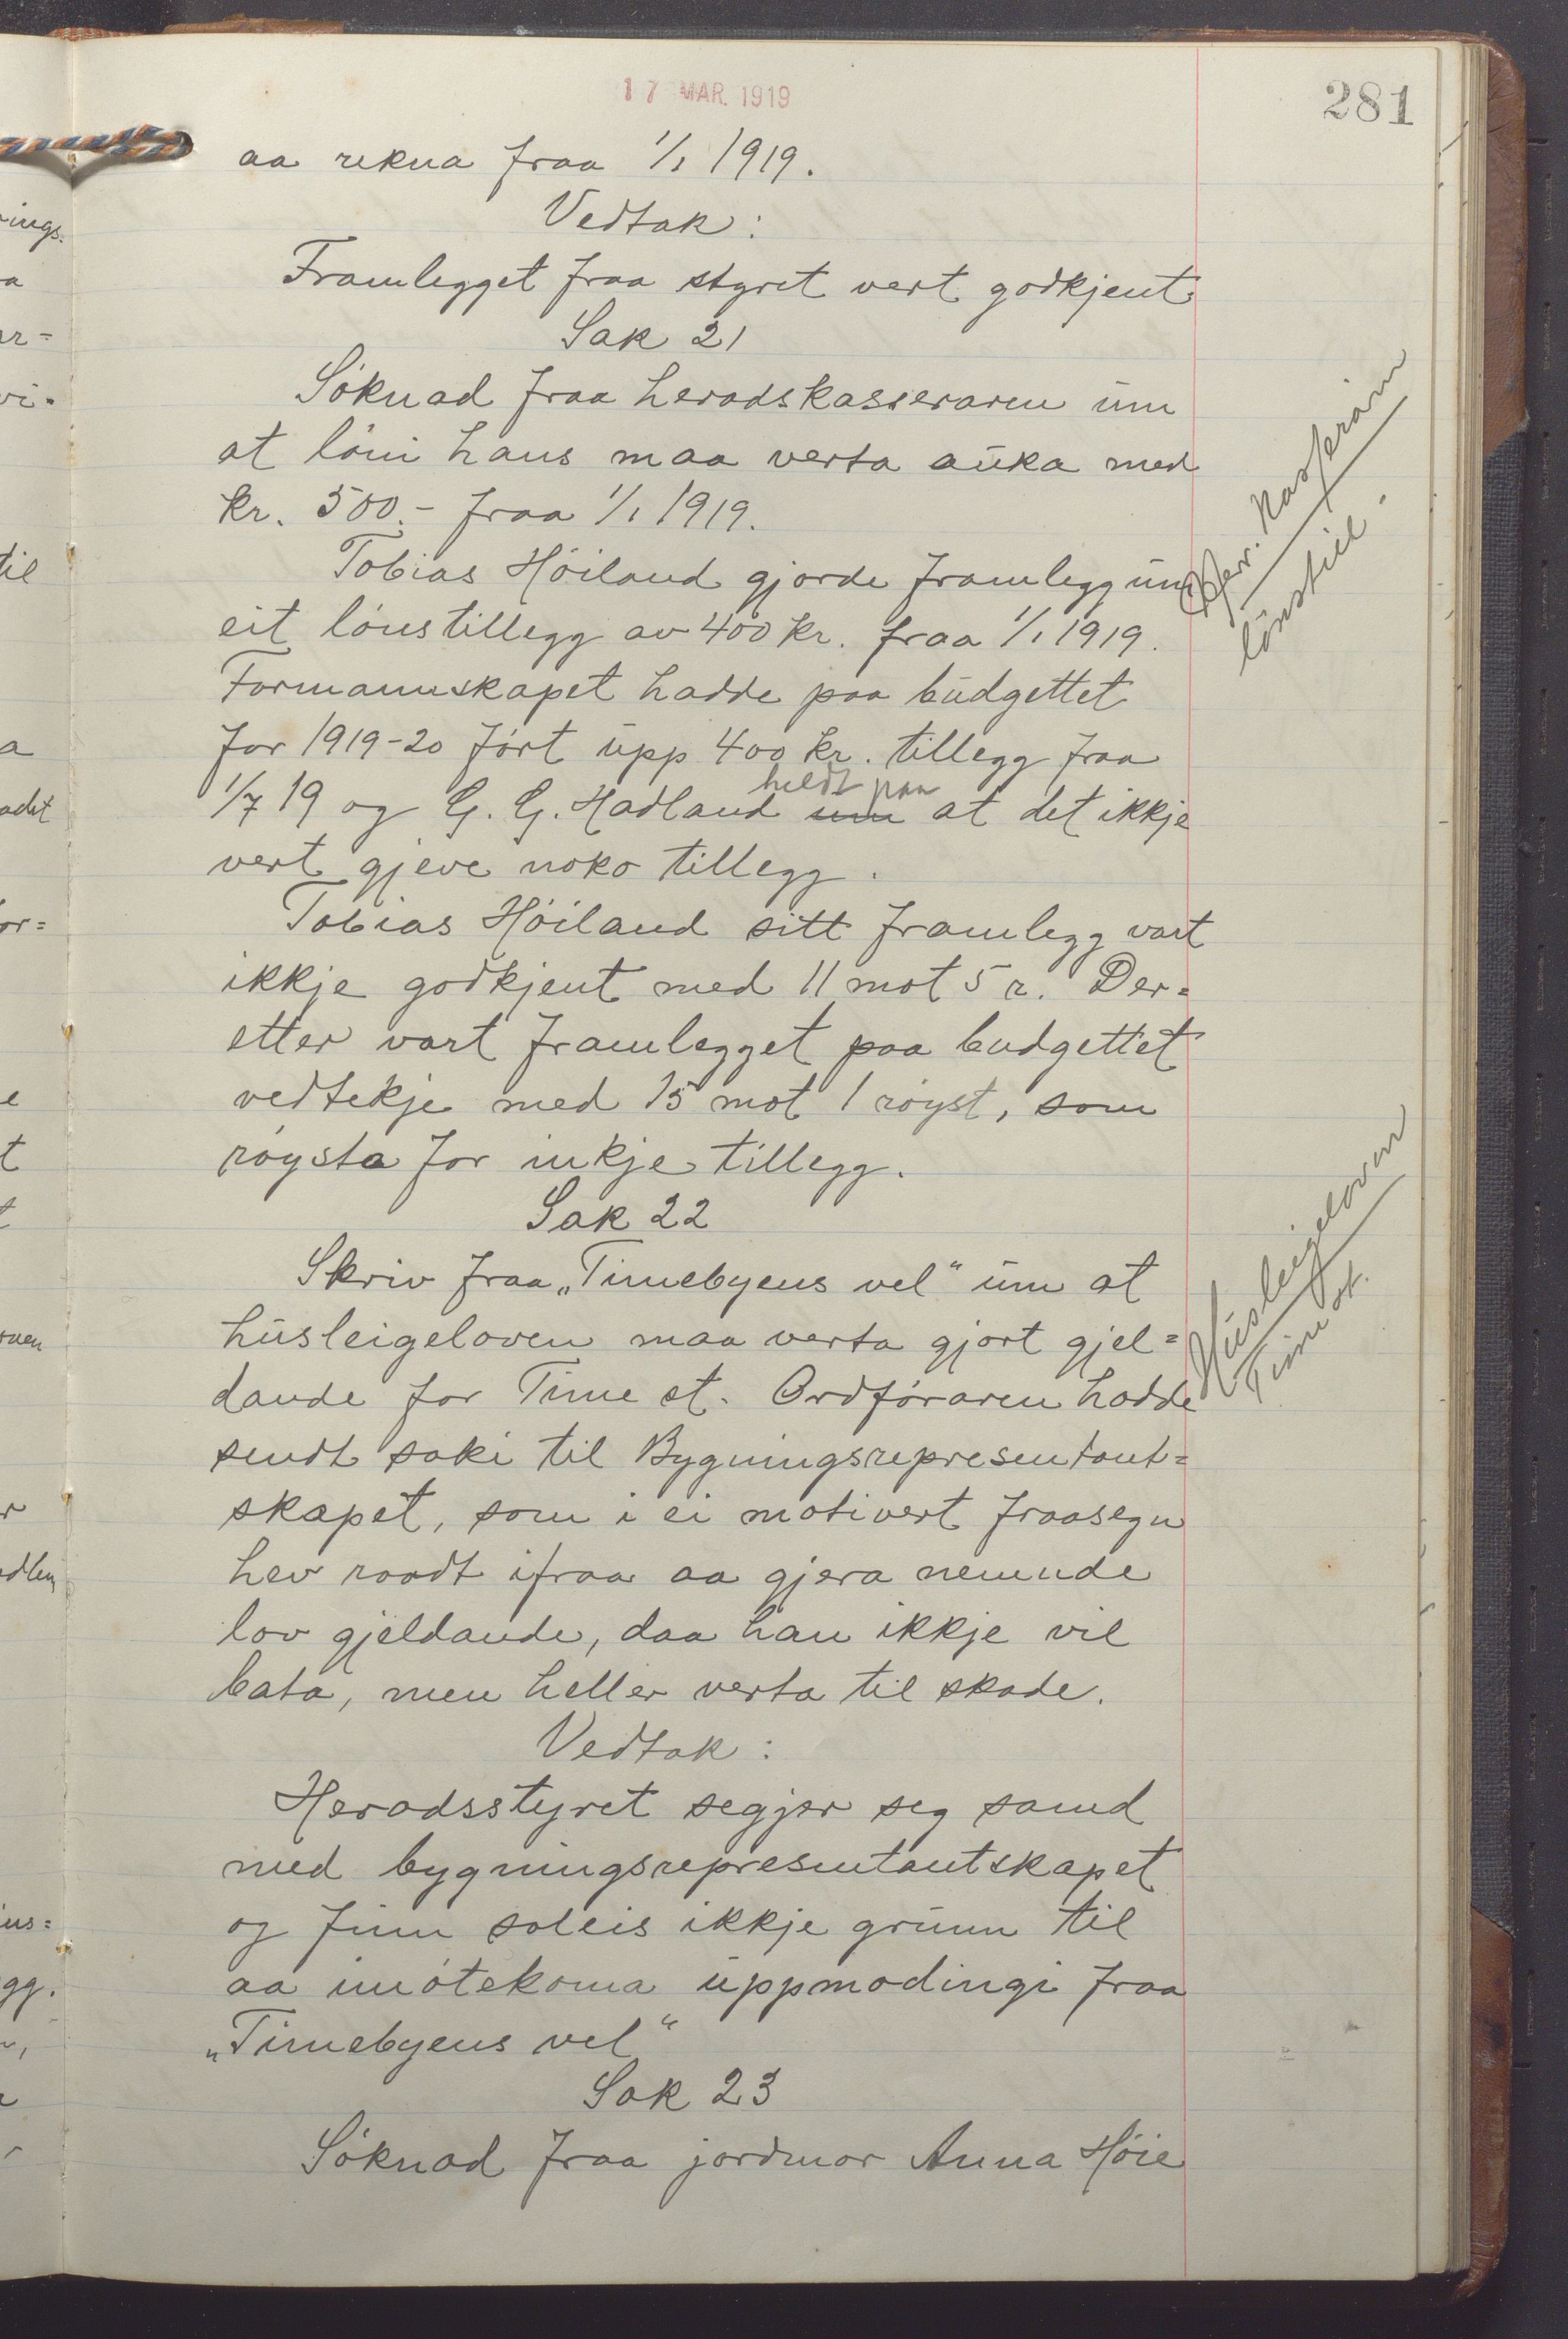 17 MAR. 1919
281
aa rekna fraa 1/1 1919.
Vedtak:
Framlegget fraa styret vert godkjent.
Sak 21
Söknad fraa heradskasseraren um
at löni hans maa verta auka med
kr. 500.- fraa 1/1 1919.
Tobias Höiland gjorde framlegg um
eit lönstillegg av 400 kr. fraa 1/1 1919.
Formannskapet hadde paa budgettet
for 1919-20 fört upp 400 kr. tillegg fraa
heldt paa
1/7 19 og G. G. Hadland um at det ikkje
vert gjeve noko tillegg.
Tobias Höiland sitt framlegg vart
ikkje godkjent med 11 mot 5 r. Der=
etter vart framlegget paa budgettet
vedtekje med 15 mot 1 röyst, som
röysta for inkje tillegg.
Sak 22
Skriv fraa „Timebyens vel" um at
husleigeloven maa verta gjort gjel=
dande for Time st. Ordföraren hadde
sendt saki til Bygningsrepresentant=
skapet, som i ei motivert fraasegn
hev raadt ifraa aa gjera nemnde
lov gjeldande, daa han ikkje vil
bata, men heller verta til skade.
Vedtak:
Heradsstyret segjer seg samd
med bygningsrepresentantskapet
og finn soleis ikkje grunn til
aa imötekoma uppmodingi fraa
„Timebyens vel"
Sak 23
Söknad fraa jordmor Anna Höie
Her.
lönstill.
Husleigeloven
Time st.